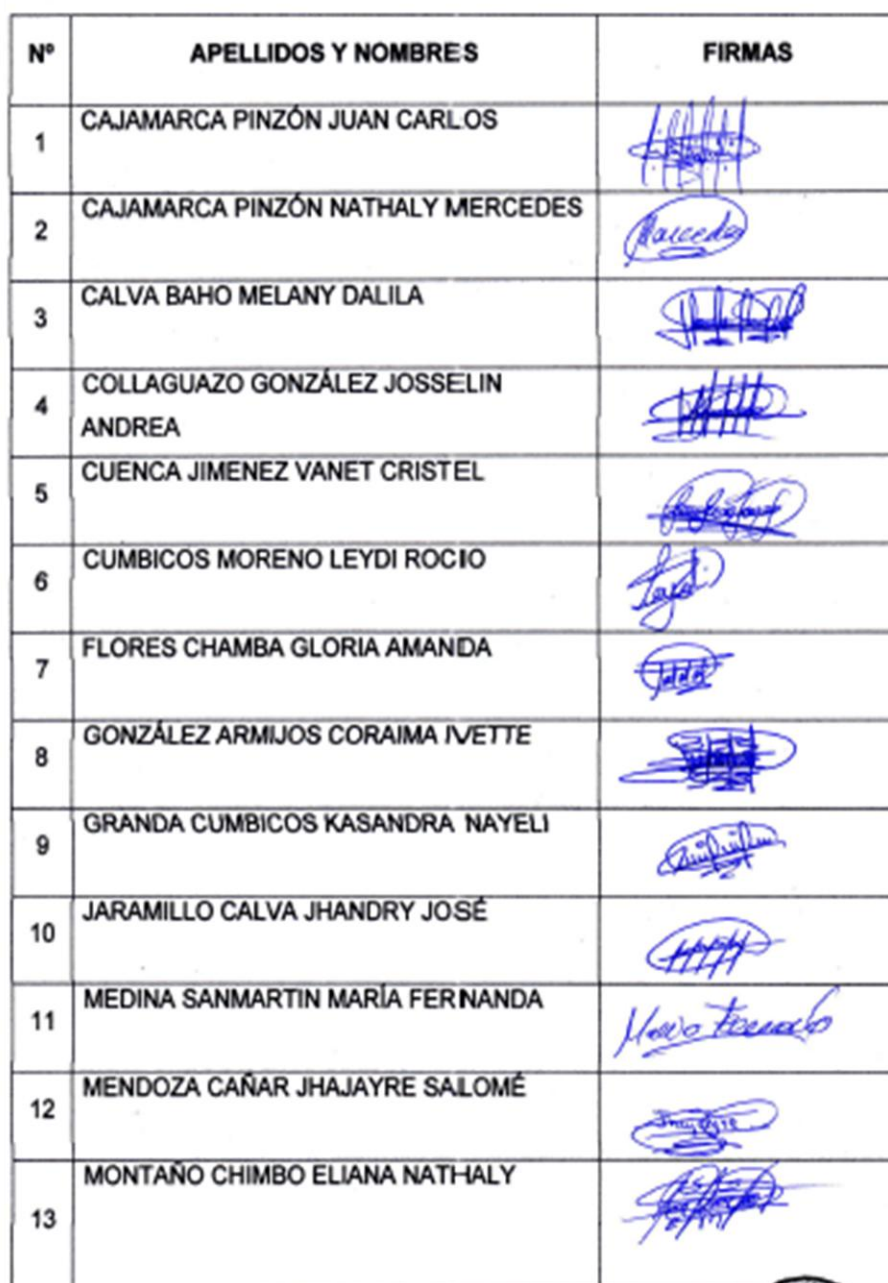 Nº APELLIDOS Y NOMBRES FIRMAS
1 CAJAMARCA PINZÓN JUAN CARLOS
2 CAJAMARCA PINZÓN NATHALY MERCEDES Mercedes
3 CALVA BAHO MELANY DALILA
4 COLLAGUAZO GONZÁLEZ JOSSELIN
ANDREA
5 CUENCA JIMENEZ VANET CRISTEL
6 CUMBICOS MORENO LEYDI ROCIO Leydi
7 FLORES CHAMBA GLORIA AMANDA
8 GONZÁLEZ ARMIJOS CORAIMA IVETTE
9 GRANDA CUMBICOS KASANDRA NAYELI
10 JARAMILLO CALVA JHANDRY JOSÉ
11 MEDINA SANMARTIN MARÍA FERNANDA María Fernanda
12 MENDOZA CAÑAR JHAJAYRE SALOMÉ
13 MONTAÑO CHIMBO ELIANA NATHALY